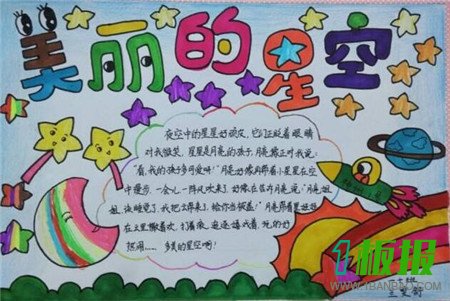 美丽的星空
夜空中的星星好顽皮，它们正眨着眼睛
对我微笑，星星是月亮的孩子，月亮像正对我说：
“看，我的孩子多可爱呀！”月亮好像牵着小星星在空
中漫步，一会儿一阵风吹来了，好像在告诉月亮说：“月亮姐
姐，该睡觉了，我把云带来了，给你当被盖！”月亮带着星娃娃
在云里
的好
热闹……多美的星空啊！
1板报
WWW.1BANBAO.COM